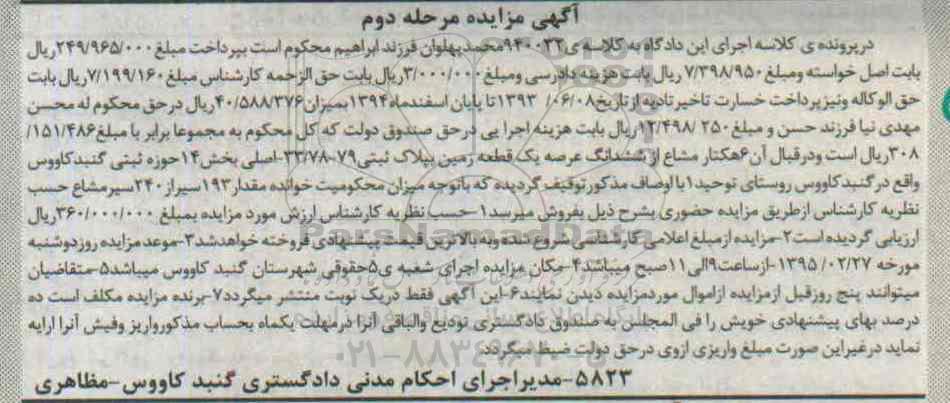 آگهی مزایده مرحله دوم
درپرونده ی کلاسه اجرای این دادگاه به کلاسه ی۹۴۰۰۳۲محمدپهلوان فرزند ابراهیم محکوم است بپرداخت مبلغ۲۴۹/۹۶۵/۰۰۰ریال
بابت اصل خواسته ومبلغ۷/۳۹۸/۹۵۰ ریال بابت هزینه دادرسی ومبلغ۳/۰۰۰/۰۰۰ریال بابت حق الزحمه کارشناس مبلغ۷/۱۹۹/۱۶۰ریال بابت
حق الوکاله ونیزپرداخت خسارت تاخیرتادیه ازتاریخ۰۶/۰۸/ ۱۳۹۳ تا پایان اسفندماه۱۳۹۴بمیزان۴۰/۵۸۸/۳۷۶ریال درحق محکوم له محسن
مهدی نیا فرزند حسن و مبلغ۲۵۰ /۱۲/۴۹۸ریال بابت هزینه اجرا یی درحق صندوق دولت که کل محکوم به مجموعا برابر با مبلغ۱۵۱/۴۸۶/
۳۰۸ریال است ودرقبال آن۶هکتار مشاع ازششدانگ عرصه یک قطعه زمین بپلاک ثبتی۷۹-۳۳/۷۸-اصلی بخش۱۴حوزه ثبتی گنبدکاووس
واقع درگنبدکاووس روستای توحید۱بااوصاف مذکورتوقیف گردیده که باتوجه میزان محکومیت خوانده مقدار۱۹۳سیراز۲۴۰سیرمشاع حسب
نظریه کارشناس ازطریق مزایده حضوری بشرح ذیل بفروش میرسد۱-حسب نظریه کارشناس ارزش مورد مزایده بمبلغ ۳۶۰/۰۰۰/۰۰۰ریال
ارزیابی گردیده است۲-مزایده ازمبلغ اعلامی کارشناسی شروع شده وبه بالاترین قیمت پیشنهادی فروخته خواهدشد۳-موعدمزایده روزدوشنبه
مورخه ۰۲/۲۷/ ۱۳۹۵-ازساعت۹الی۱۱صبح میباشد۴-مکان مزایده اجرای شعبه ی۵حقوقی شهرستان گنبد کاووس میباشد۵-متقاضیان
میتوانند پنج روزقبل ازمزایده ازاموال موردمزایده دیدن نمایند۶-این آگهی فقط دریک نوبت منتشر میگردد۷-برنده مزایده مکلف است ده
درصد بهای پیشنهادی خویش را فی المجلس به صندوق دادگستری تودیع والباقی آنرا درمهلت یکماه بحساب مذکورواریز وفیش آنرا ارایه
نماید درغیراین صورت مبلغ واریزی ازوی درحق دولت ضبط میگردد
۵۸۲۳-مدیراجرای احکام مدنی دادگستری گنبد کاووس-مظاهری
ParsNamadData
۰۲۱-۸۸۳۴۹۶۷۰-۵